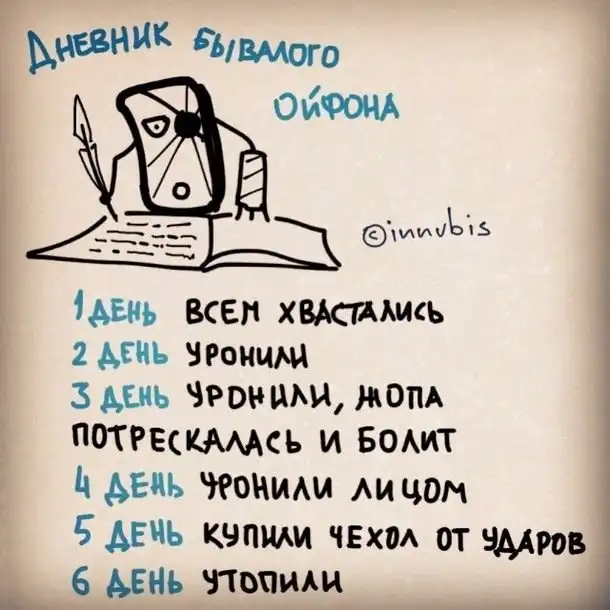 Дневник бывалого
ойфона
©innubis
1 день всем хвастались
2 день уронили
3 день уронили, жопа
потрескалась и болит
4 день уронили лицом
5 день купили чехол от ударов
6 день утопили